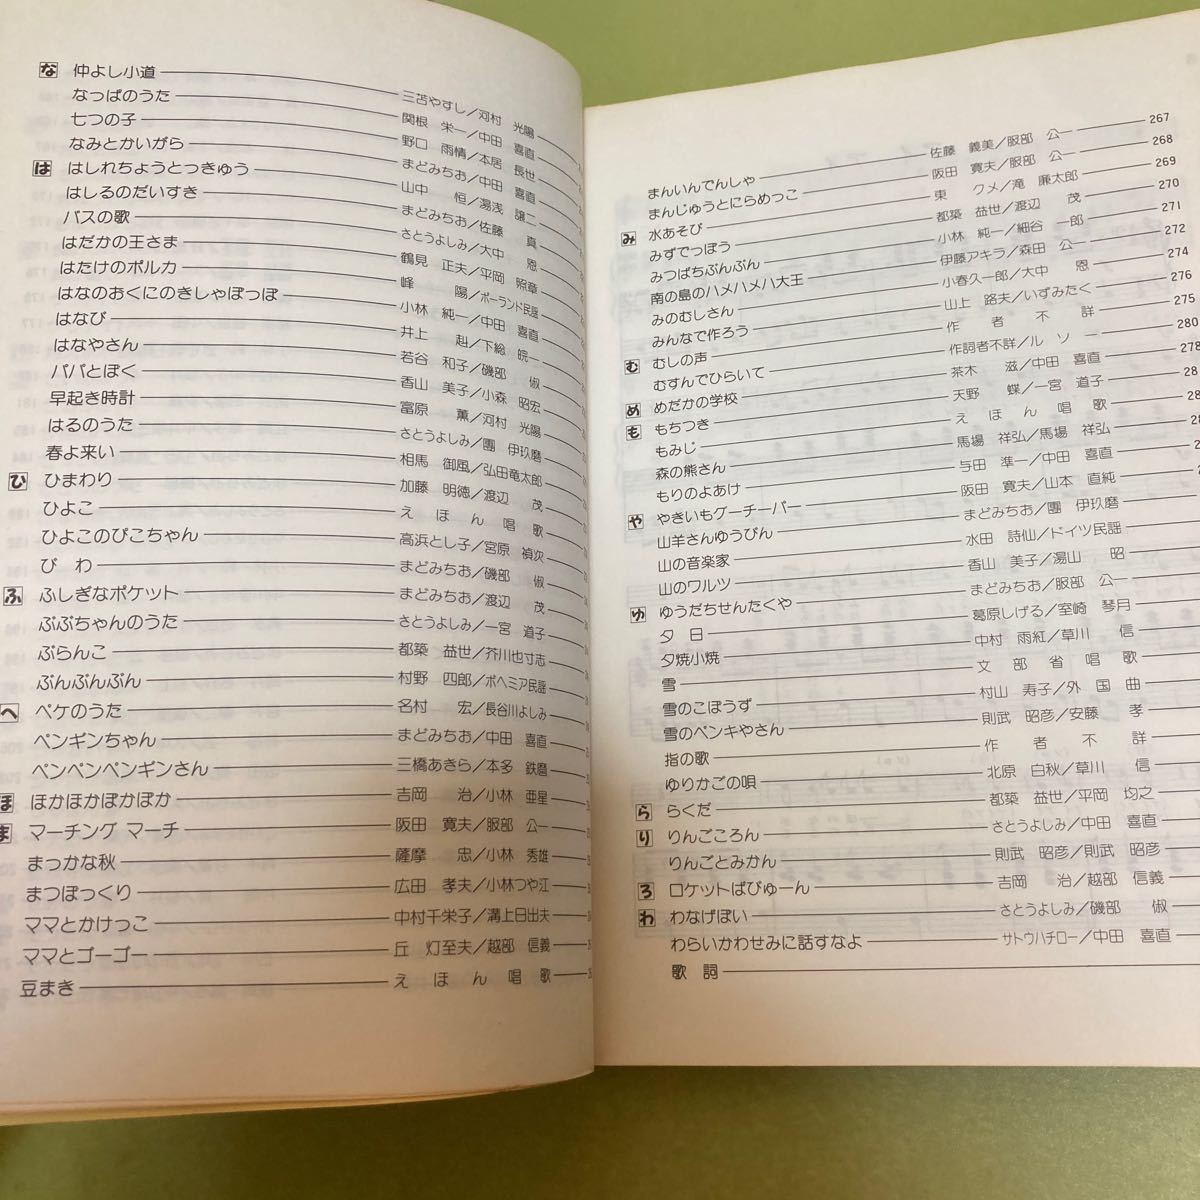 な 仲よし小道 三苫やすし／河村 光陽
なっぱのうた 関根 栄一／中田 喜直
七つの子 野口 雨情／本居 長世
なみとかいがら まどみちお／中田 喜直
は はしれちょうとっきゅう 山中 恒／湯浅 譲二
はしるのだいすき まどみちお／佐藤 真
バスの歌 さとうよしみ／大中 恩
はだかの王さま 鶴見 正夫／平岡 照章
はたけのポルカ 峰 陽／ポーランド民謡
はなのおくにのきしゃぽっぽ 小林 純一／中田 喜直
はなび 井上 赳／下総 皖一
はなやさん 若谷 和子／磯部 俶
パパとぼく 香山 美子／小森 昭宏
早起き時計 富原 薫／河村 光陽
はるのうた さとうよしみ／團 伊玖磨
春よ来い 相馬 御風／弘田竜太郎
ひ ひまわり 加藤 明徳／渡辺 茂
ひよこ えほん唱歌
ひよこのぴこちゃん 高浜とし子／宮原 禎次
びわ まどみちお／磯部 俶
ふ ふしぎなポケット まどみちお／渡辺 茂
ぶぶちゃんのうた さとうよしみ／一宮 道子
ぶらんこ 都築 益世／芥川也寸志
ぶんぶんぶん 村野 四郎／ボヘミア民謡
へ ペケのうた 名村 宏／長谷川よしみ
ペンギンちゃん まどみちお／中田 喜直
ペンペンペンギンさん 三橋あきら／本多 鉄麿
ほ ほかほかぽかぽか 吉岡 治／小林 亜星
ま マーチング マーチ 阪田 寛夫／服部 公一
まっかな秋 薩摩 忠／小林 秀雄
まつぼっくり 広田 孝夫／小林つや江
ママとかけっこ 中村千栄子／溝上日出夫
ママとゴーゴー 丘 灯至夫／越部 信義
豆まき えほん唱歌
まんいんでんしゃ 佐藤 義美／服部 公一 267
まんじゅうとにらめっこ 阪田 寛夫／服部 公一 268
み 水あそび 東 クメ／滝 廉太郎 269
みずでっぽう 都築 益世／渡辺 茂 270
みつばちぶんぶん 小林 純一／細谷 一郎 271
南の島のハメハメハ大王 伊藤アキラ／森田 公一 272
みのむしさん 小春久一郎／大中 恩 274
みんなで作ろう 山上 路夫／いずみたく 276
む むしの声 作者不詳 275
むすんでひらいて 作詞者不詳／ルソー 280
め めだかの学校 茶木 滋／中田 喜直 278
も もちつき 天野 蝶／一宮 道子 28
もみじ えほん唱歌 28
森の熊さん 馬場 祥弘／馬場 祥弘 28
もりのよあけ 与田 準一／中田 喜直 2
や やきいもグーチーパー 阪田 寛夫／山本 直純 2
山羊さんゆうびん まどみちお／團 伊玖磨
山の音楽家 水田 詩仙／ドイツ民謡
山のワルツ 香山 美子／湯山 昭
ゆ ゆうだちせんたくや まどみちお／服部 公一
夕日 葛原しげる／室崎 琴月
夕焼小焼 中村 雨紅／草川 信
雪 文部省唱歌
雪のこぼうず 村山 寿子／外国曲
雪のペンキやさん 則武 昭彦／安藤 孝
指の歌 作者不詳
ゆりかごの唄 北原 白秋／草川 信
ら らくだ 都築 益世／平岡 均之
り りんごころん さとうよしみ／中田 喜直
りんごとみかん 則武 昭彦／則武 昭彦
ろ ロケットばびゅーん 吉岡 治／越部 信義
わ わなげぽい さとうよしみ／磯部 俶
わらいかわせみに話すなよ サトウハチロー／中田 喜直
歌詞